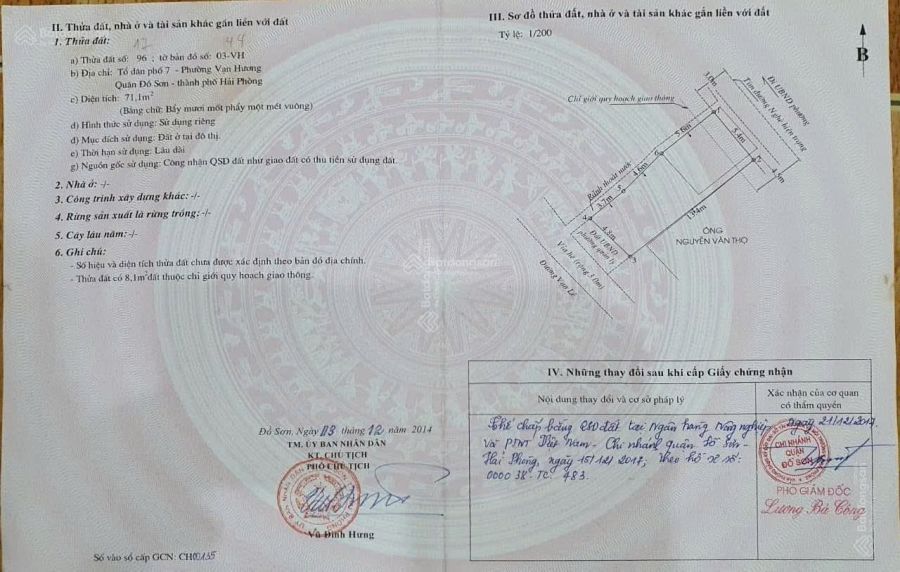 II. Thửa đất, nhà ở và tài sản khác gắn liền với đất
1. Thửa đất: 12 44
a) Thửa đất số: 96 ; tờ bản đồ số: 03-VH
b) Địa chỉ: Tổ dân phố 7 - Phường Vạn Hương
Quận Đồ Sơn - thành phố Hải Phòng
c) Diện tích: 71,1m²
(Bằng chữ: Bẩy mươi mốt phẩy một mét vuông)
d) Hình thức sử dụng: Sử dụng riêng
đ) Mục đích sử dụng: Đất ở tại đô thị.
e) Thời hạn sử dụng: Lâu dài
g) Nguồn gốc sử dụng: Công nhận QSD đất như giao đất có thu tiền sử dụng đất.
2. Nhà ở: -/-
3. Công trình xây dựng khác: -/-
4. Rừng sản xuất là rừng trồng: -/-
5. Cây lâu năm: -/-
6. Ghi chú:
- Số hiệu và diện tích thửa đất chưa được xác định theo bản đồ địa chính.
- Thửa đất có 8,1m² đất thuộc chỉ giới quy hoạch giao thông.
Đồ Sơn, Ngày 03 tháng 12 năm 2014
TM. ỦY BAN NHÂN DÂN
KT. CHỦ TỊCH
PHÓ CHỦ TỊCH
Vũ Đình Hưng
Số vào sổ cấp GCN: CH00135
III. Sơ đồ thửa đất, nhà ở và tài sản khác gắn liền với đất
Tỷ lệ: 1/200
B
Chỉ giới quy hoạch giao thông
3.0m
Đi UBND phường
Tim đường Nghè hiện trạng
1
5.4m
2
4.5m
5.6m
6
Rãnh thoát nước
4.6m
5
3.7m
4
4.3m
Đất UBND
phường quản lý
3
13.4m
ÔNG
NGUYỄN VĂN THỌ
Vỉa hè (rộng 3.0m)
Đường Vạn Lê
Batdongsan
IV. Những thay đổi sau khi cấp Giấy chứng nhận
Nội dung thay đổi và cơ sở pháp lý
Xác nhận của cơ quan
có thẩm quyền
Thế chấp bằng QSD đất tại Ngân hàng Nông nghiệp
và PTNT Việt Nam - Chi nhánh quận Đồ Sơn
Hải Phòng, ngày 15/12/2017; theo hồ sơ số:
000038.TC.483.
Ngày 21/12/2017
CHI NHÁNH
QUẬN
ĐỒ SƠN
PHÓ GIÁM ĐỐC
Lương Bá Công